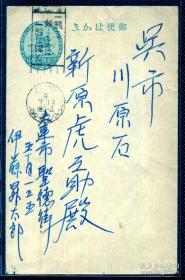 郵便はがき
呉市
川原石
新原虎之助殿
大連市聖徳街
五丁目二三五
伊藤昇太郎